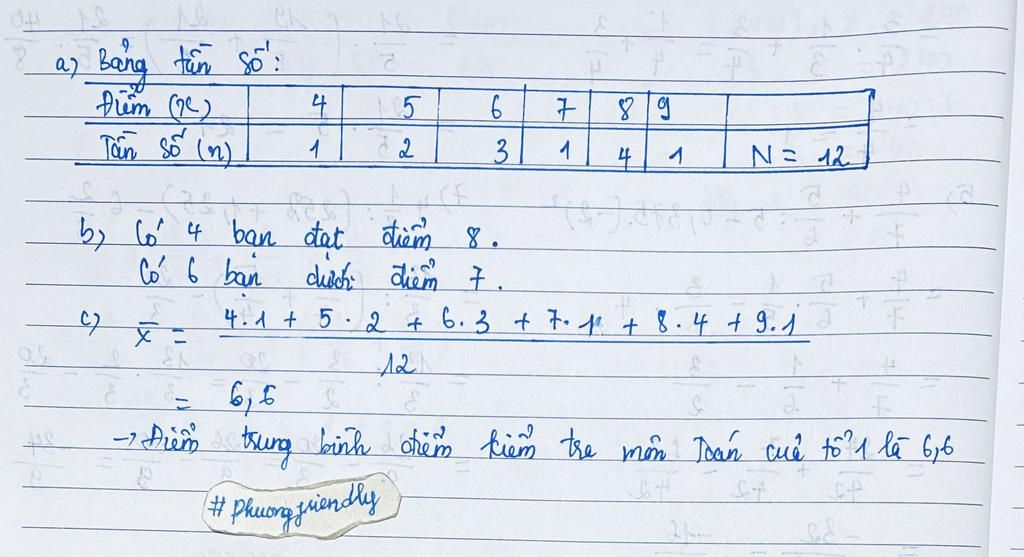 a) Bảng tần số:
Điểm (x) 4 5 6 7 8 9
Tần số (n) 1 2 3 1 4 1 N = 12
b) Có 4 bạn đạt điểm 8.
Có 6 bạn dưới điểm 7.
c) x̄ = 4.1 + 5.2 + 6.3 + 7.1 + 8.4 + 9.1
12
= 6,6
→ Điểm trung bình điểm kiểm tra môn Toán của tổ 1 là 6,6
#phuongfriendly